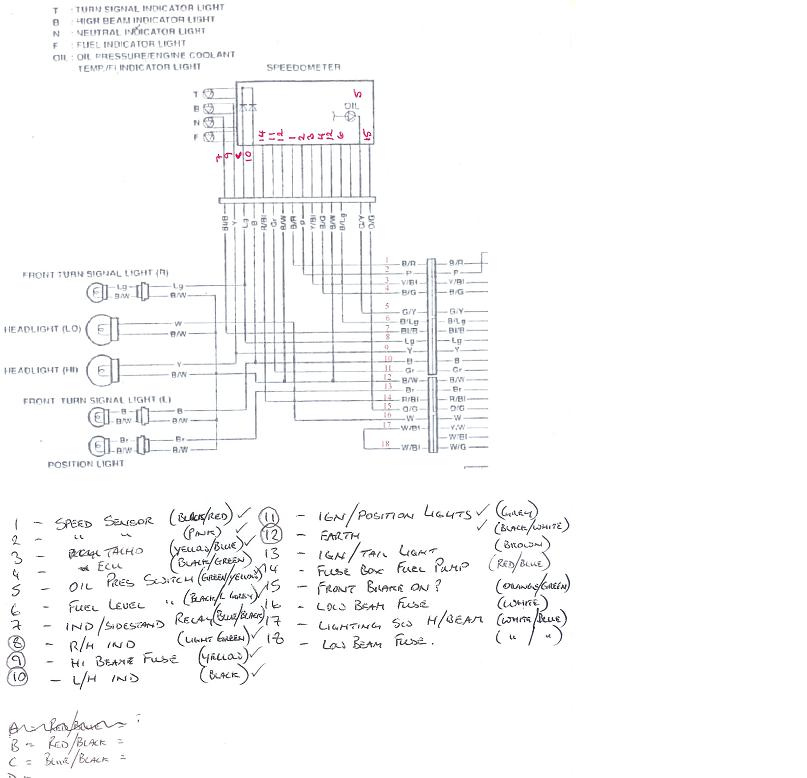 T : TURN SIGNAL INDICATOR LIGHT
B : HIGH BEAM INDICATOR LIGHT
N : NEUTRAL INDICATOR LIGHT
F : FUEL INDICATOR LIGHT
OIL : OIL PRESSURE/ENGINE COOLANT
TEMP./FI INDICATOR LIGHT
SPEEDOMETER
T
B
N
F
OIL
5
14 11 12 1 2 3 4 12 6 15
7 9 8 10
Bl/B Y Lg B R/Bl Gr B/W B/R P Y/Bl B/G B/W B/Lg G/Y O/G
1 B/R B/R
2 P P
3 Y/Bl Y/Bl
4 B/G B/G
5 G/Y G/Y
6 B/Lg B/Lg
7 Bl/B Bl/B
8 Lg Lg
9 Y Y
10 B B
11 Gr Gr
12 B/W B/W
13 Br Br
14 R/Bl R/Bl
15 O/G O/G
16 W W
17 W/Bl Y/W
W/Bl
18 W/Bl W/G
FRONT TURN SIGNAL LIGHT (R)
Lg Lg
B/W B/W
HEADLIGHT (LO)
W
B/W
HEADLIGHT (HI)
Y
B/W
FRONT TURN SIGNAL LIGHT (L)
B B
B/W B/W
Br Br
B/W B/W
POSITION LIGHT
1 - SPEED SENSOR (BLACK/RED) ✓
2 - " " (PINK) ✓
3 - TACHO (YELLOW/BLUE) ✓
4 - ECU (BLACK/GREEN)
5 - OIL PRES SWITCH (GREEN/YELLOW)
6 - FUEL LEVEL " (BLACK/L GREY)
7 - IND/SIDESTAND RELAY (BLUE/BLACK)
8 - R/H IND (LIGHT GREEN) ✓
9 - HI BEAM FUSE (YELLOW) ✓
10 - L/H IND (BLACK) ✓
11 - IGN/POSITION LIGHTS ✓ (GREY)
12 - EARTH ✓ (BLACK/WHITE)
13 - IGN/TAIL LIGHT (BROWN)
14 - FUSE BOX FUEL PUMP (RED/BLUE)
15 - FRONT BRAKE ON? (ORANGE/GREEN)
16 - LOW BEAM FUSE (WHITE)
17 - LIGHTING SW H/BEAM (WHITE/BLUE)
18 - LOW BEAM FUSE. ( " / " )
B = RED/BLACK =
C = BLUE/BLACK =